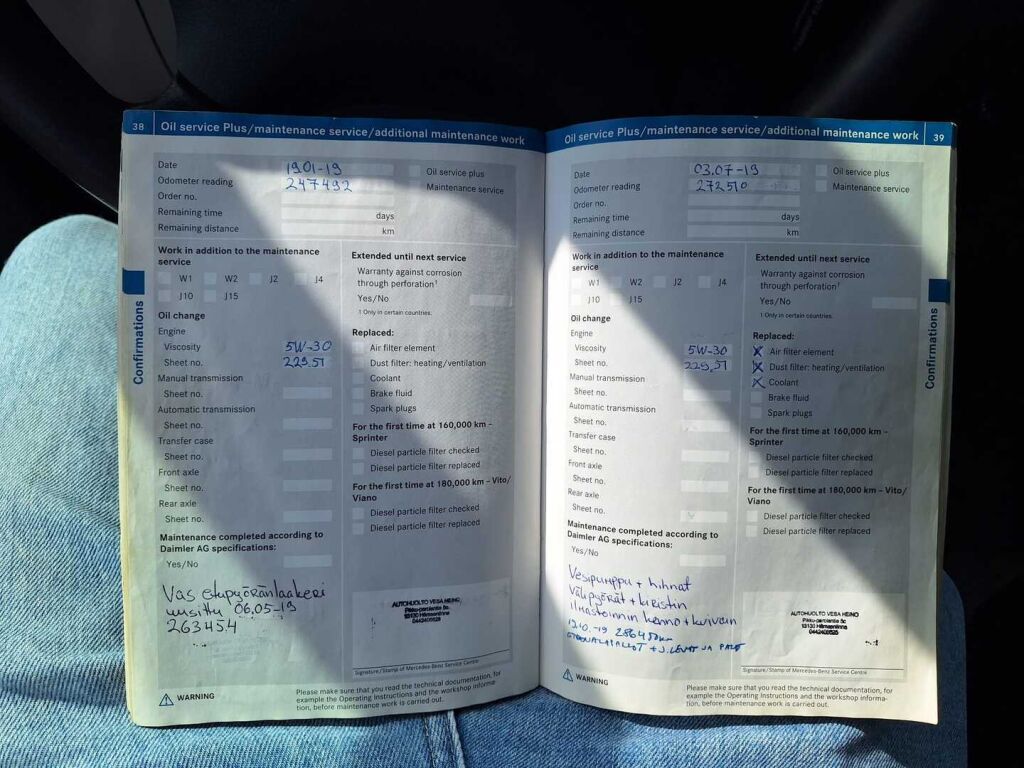 38 Oil service Plus/maintenance service/additional maintenance work
Date 19.01-19
Odometer reading 247492
Order no.
Remaining time days
Remaining distance km
Oil service plus
Maintenance service
Work in addition to the maintenance
service
W1 W2 J2 J4
J10 J15
Oil change
Engine
Viscosity 5W-30
Sheet no. 229.51
Manual transmission
Sheet no.
Automatic transmission
Sheet no.
Transfer case
Sheet no.
Front axle
Sheet no.
Rear axle
Sheet no.
Maintenance completed according to
Daimler AG specifications:
Yes/No
Vas etupyöränlaakeri
uusittu 06.05-19
263454
Extended until next service
Warranty against corrosion
through perforation¹
Yes/No
1 Only in certain countries.
Replaced:
Air filter element
Dust filter: heating/ventilation
Coolant
Brake fluid
Spark plugs
For the first time at 160,000 km –
Sprinter
Diesel particle filter checked
Diesel particle filter replaced
For the first time at 180,000 km – Vito/
Viano
Diesel particle filter checked
Diesel particle filter replaced
AUTOHUOLTO VESA HEINO
Signature/Stamp of Mercedes-Benz Service Centre
WARNING
Please make sure that you read the technical documentation, for
example the Operating Instructions and the workshop informa-
tion, before maintenance work is carried out.
Confirmations
Oil service Plus/maintenance service/additional maintenance work 39
Date 03.07-19
Odometer reading 272510
Order no.
Remaining time days
Remaining distance km
Oil service plus
Maintenance service
Work in addition to the maintenance
service
W1 W2 J2 J4
J10 J15
Oil change
Engine
Viscosity 5W-30
Sheet no. 229.51
Manual transmission
Sheet no.
Automatic transmission
Sheet no.
Transfer case
Sheet no.
Front axle
Sheet no.
Rear axle
Sheet no.
Maintenance completed according to
Daimler AG specifications:
Yes/No
Vesipumppu + hihnat
Välipyörät + kiristin
ilmastoinnin kenno + kuivain
12.10.-19 286450km
Extended until next service
Warranty against corrosion
through perforation¹
Yes/No
1 Only in certain countries.
Replaced:
X Air filter element
X Dust filter: heating/ventilation
X Coolant
Brake fluid
Spark plugs
For the first time at 160,000 km –
Sprinter
Diesel particle filter checked
Diesel particle filter replaced
For the first time at 180,000 km – Vito/
Viano
Diesel particle filter checked
Diesel particle filter replaced
AUTOHUOLTO VESA HEINO
Signature/Stamp of Mercedes-Benz Service Centre
WARNING
Please make sure that you read the technical documentation, for
example the Operating Instructions and the workshop informa-
tion, before maintenance work is carried out.
Confirmations